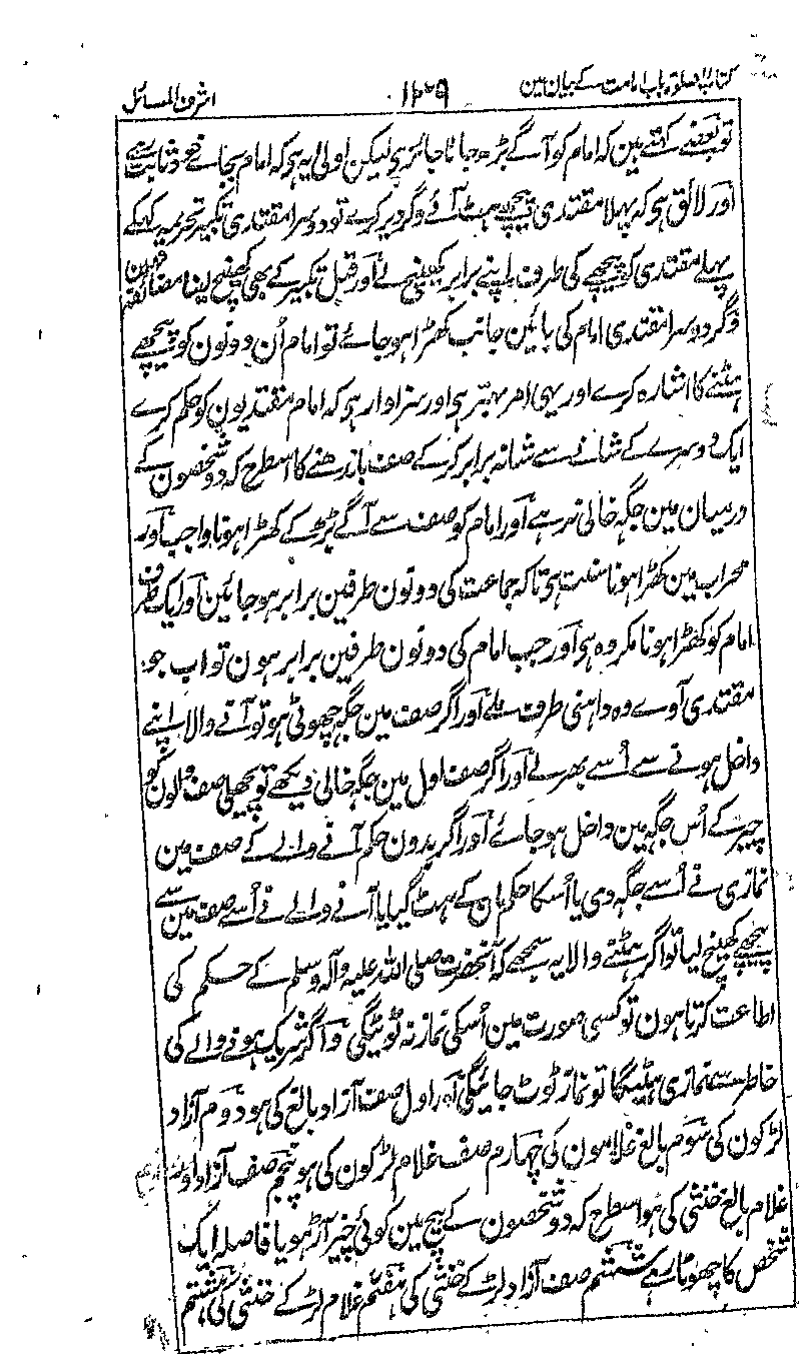 کتاب الصلوۃ باب امامت کے بیان مین ۱۲۹ اشرف المسائل
تو بعضے کہتے ہین کہ امام کو آگے بڑھ جانا جائز ہی لیکن اولی یہ ہی کہ امام بجائے خود ثابت رہے
اور لائق ہی کہ پہلا مقتدی پیچھے ہٹ آئے وگر دیر کرے تو دوسرا مقتدی تکبیر تحریمہ کہکے
پہلے مقتدی کو پیچھے کی طرف اپنے برابر کھینچ لے اور قبل تکبیر کے بھی کھینچ لینا مضائقہ نہین
وگر دوسرا مقتدی امام کی بائین جانب کھڑا ہو جائے تو امام اُن دونون کو پیچھے
ہٹنے کا اشارہ کرے اور یہی امر بہتر ہی اور سزاوار ہی کہ امام مقتدیون کو حکم کرے
ایک دوسرے کے شانے سے شانہ برابر کرکے صف باندھنے کا اسطرح کہ دو شخصون کے
درمیان مین جگہ خالی نرہے اور امام کو صف سے آگے بڑھ کے کھڑا ہونا واجب اور
محراب مین کھڑا ہونا سنت ہی تاکہ جماعت کی دونون طرفین برابر ہو جائین اور ایک طرف
امام کو کھڑا ہونا مکروہ ہی اور جب امام کی دونون طرفین برابر ہون تو اب جو
مقتدی آوے وہ داہنی طرف ملے اور اگر صف مین جگہ چھوٹی ہو تو آنے والا اپنے
داخل ہونے سے اُسے بھر لے اور اگر صف اول مین جگہ خالی دیکھے تو پچھلی صف والون کو
چیر کے اُس جگہ مین داخل ہو جائے اور اگر بدون حکم آنے والے کے صف مین
نمازی نے اُسے جگہ دی یا اُسکا حکم مان کے ہٹ گیا یا آنے والے نے اُسے صف مین سے
پیچھے کھینچ لیا تو اگر ہٹنے والا یہ سمجھے کہ آنحضرت صلی اللہ علیہ وآلہ وسلم کے حکم کی
اطاعت کرتا ہون تو کسی صورت مین اُسکی نماز نہ ٹوٹیگی وگر شریک ہونے والے کی
خاطر سے نمازی ہٹیگا تو نماز ٹوٹ جائیگی اور اول صف آزاد بالغ کی ہو دوم آزاد
لڑکون کی سوم بالغ غلامون کی چہارم صف غلام لڑکون کی ہو پنجم صف آزاد اور
غلام بالغ خنثی کی ہو اسطرح کہ دو شخصون کے بیچ مین کوئی چیز آڑ ہو یا فاصلہ ایک
شخص کا چھوٹا رہے ششم صف آزاد لڑکے خنثی کی ہفتم غلام لڑکے خنثی کی ہشتم